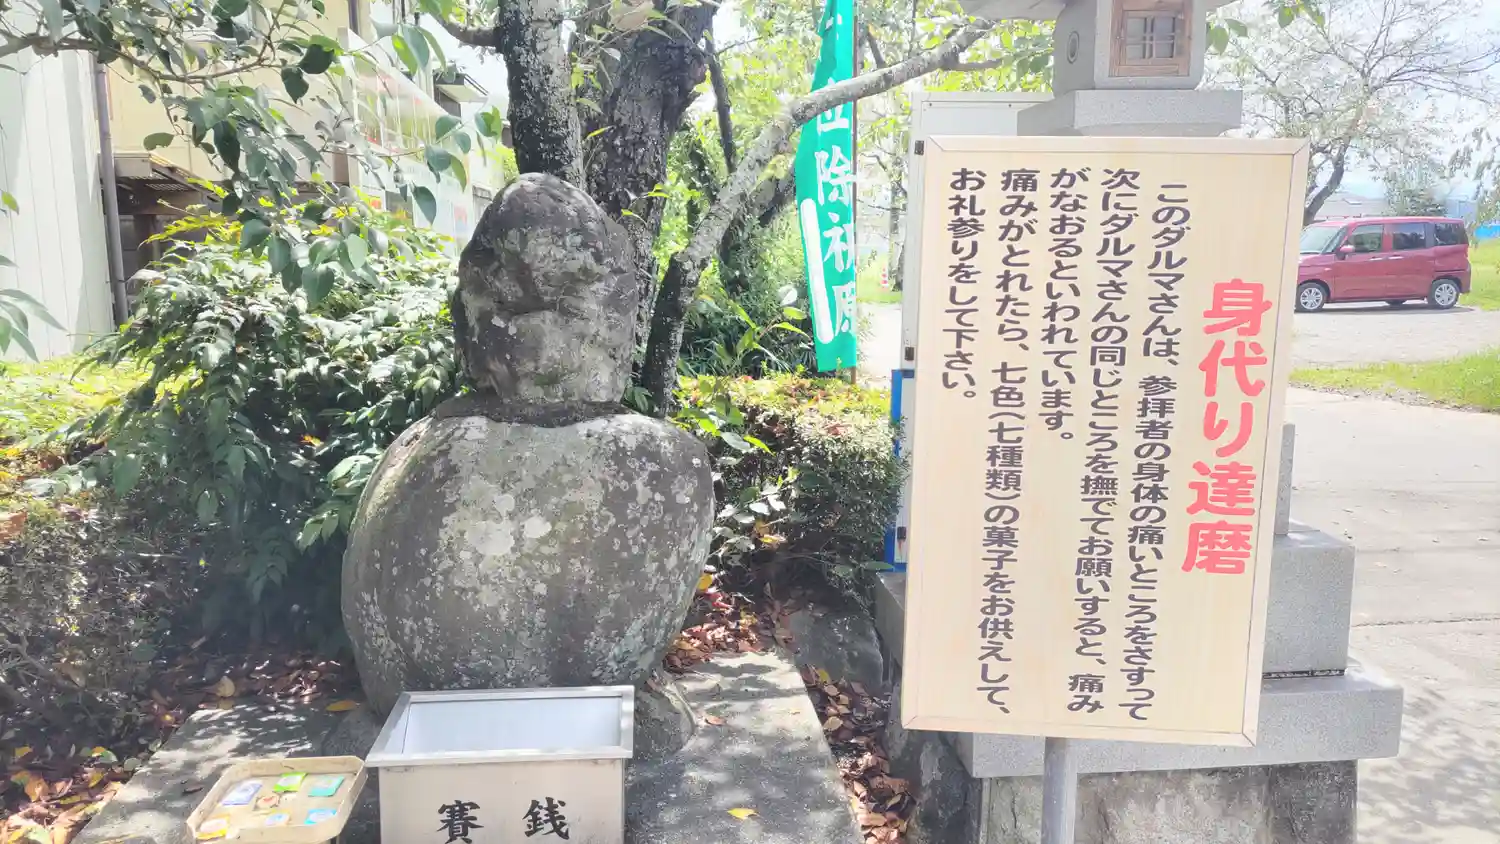 身代り達磨
このダルマさんは、参拝者の身体の痛いところをさすって
次にダルマさんの同じところを撫でてお願いすると、痛み
がなおるといわれています。
痛みがとれたら、七色(七種類)の菓子をお供えして、
お礼参りをして下さい。
位除祖原
賽銭